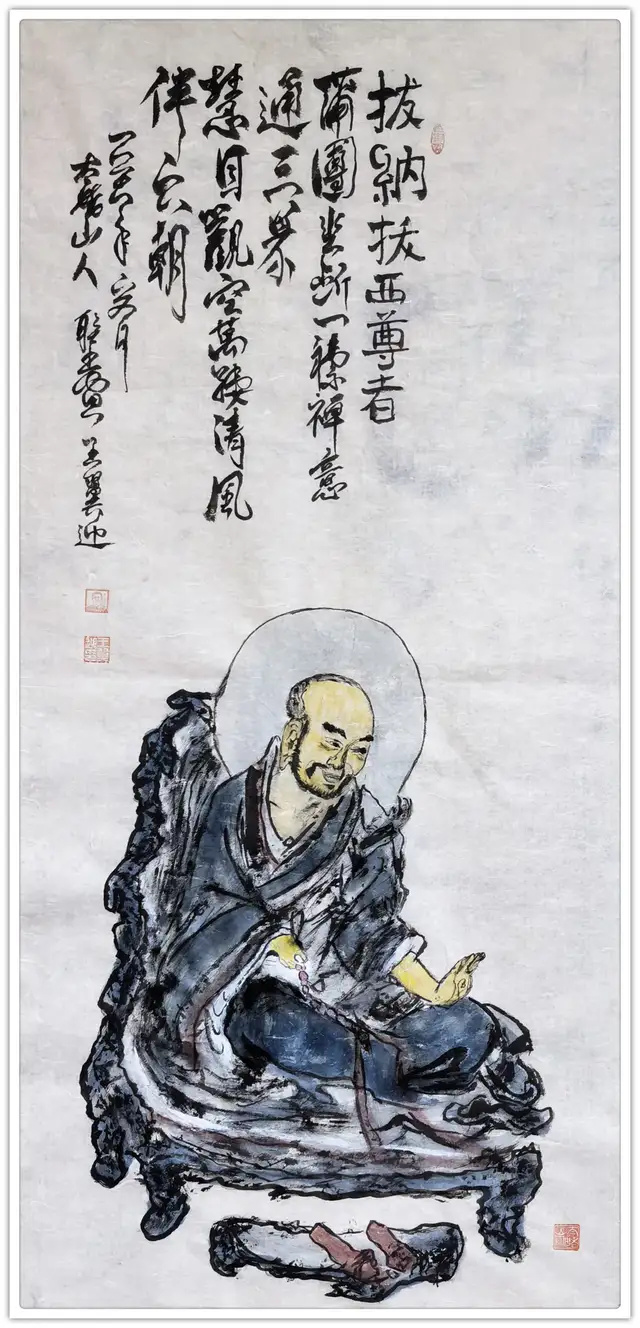 拔納拔西尊者
蒲團坐斷一襟禪意
通三界
慧目觀空萬縷清風
伴六朝
山人